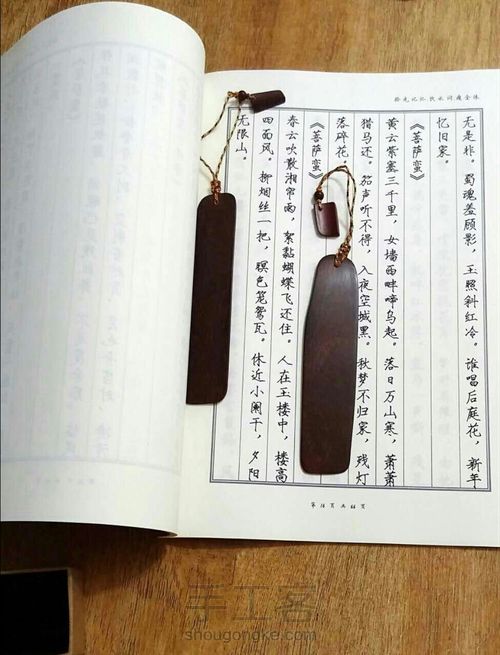 拾光记忆 饮水词瘦金体
无是非。蜀魂羞顾影，玉照斜红冷。谁唱后庭花，新年
忆旧家。
《菩萨蛮》
黄云紫塞三千里，女墙西畔啼乌起。落日万山寒，萧萧
猎马还。笳声听不得，入夜空城黑。秋梦不归家，残灯
落碎花。
《菩萨蛮》
春云吹散湘帘雨，絮黏蝴蝶飞还住。人在玉楼中，楼高
四面风。柳烟丝一把，暝色笼鸳瓦。休近小阑干，夕阳
无限山。
第 18 页 共 66 页
手工客
shougongke.com